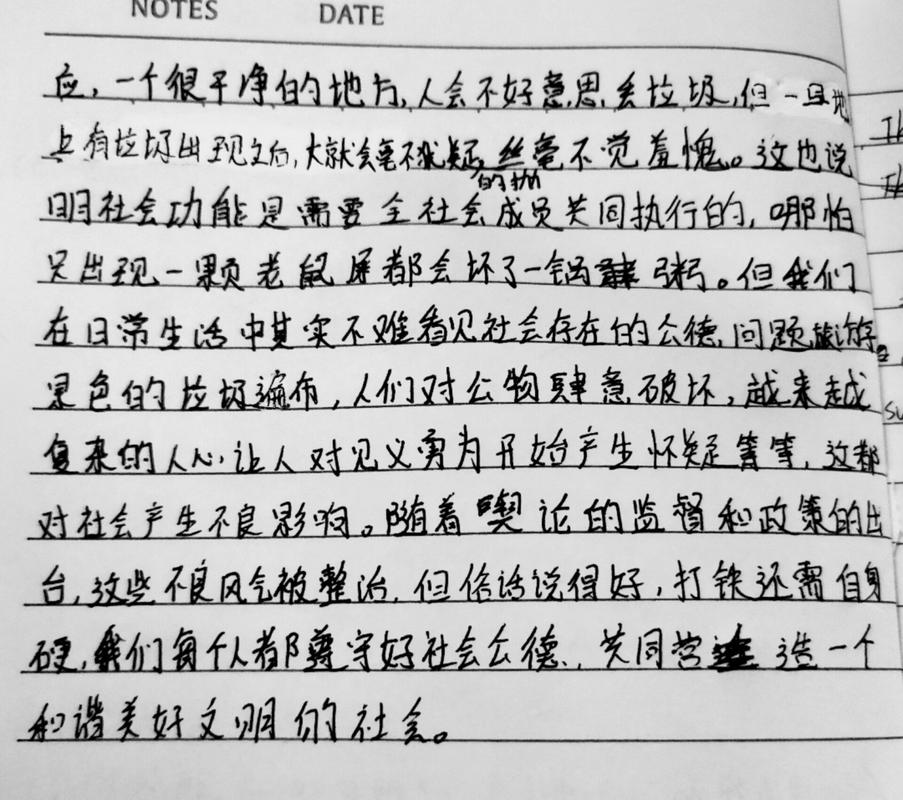 NOTES DATE
应,一个很干净的地方,人会不好意思丢垃圾,但一旦地
上有垃圾出现之后,大就会毫不犹疑的抛,丝毫不觉羞愧。这也说
明社会功能是需要全社会成员共同执行的,哪怕
只出现一颗老鼠屎都会坏了一锅粥。但我们
在日常生活中其实不难看见社会存在的公德问题,旅游
景色的垃圾遍布,人们对公物肆意破坏,越来越
复杂的人心,让人对见义勇为开始产生怀疑等等,这都
对社会产生不良影响。随着论的监督和政策的出
台,这些不良风气被整治,但俗话说得好,打铁还需自身
硬,我们每个人都尊守好社会公德,共同营造一个
和谐美好文明的社会。